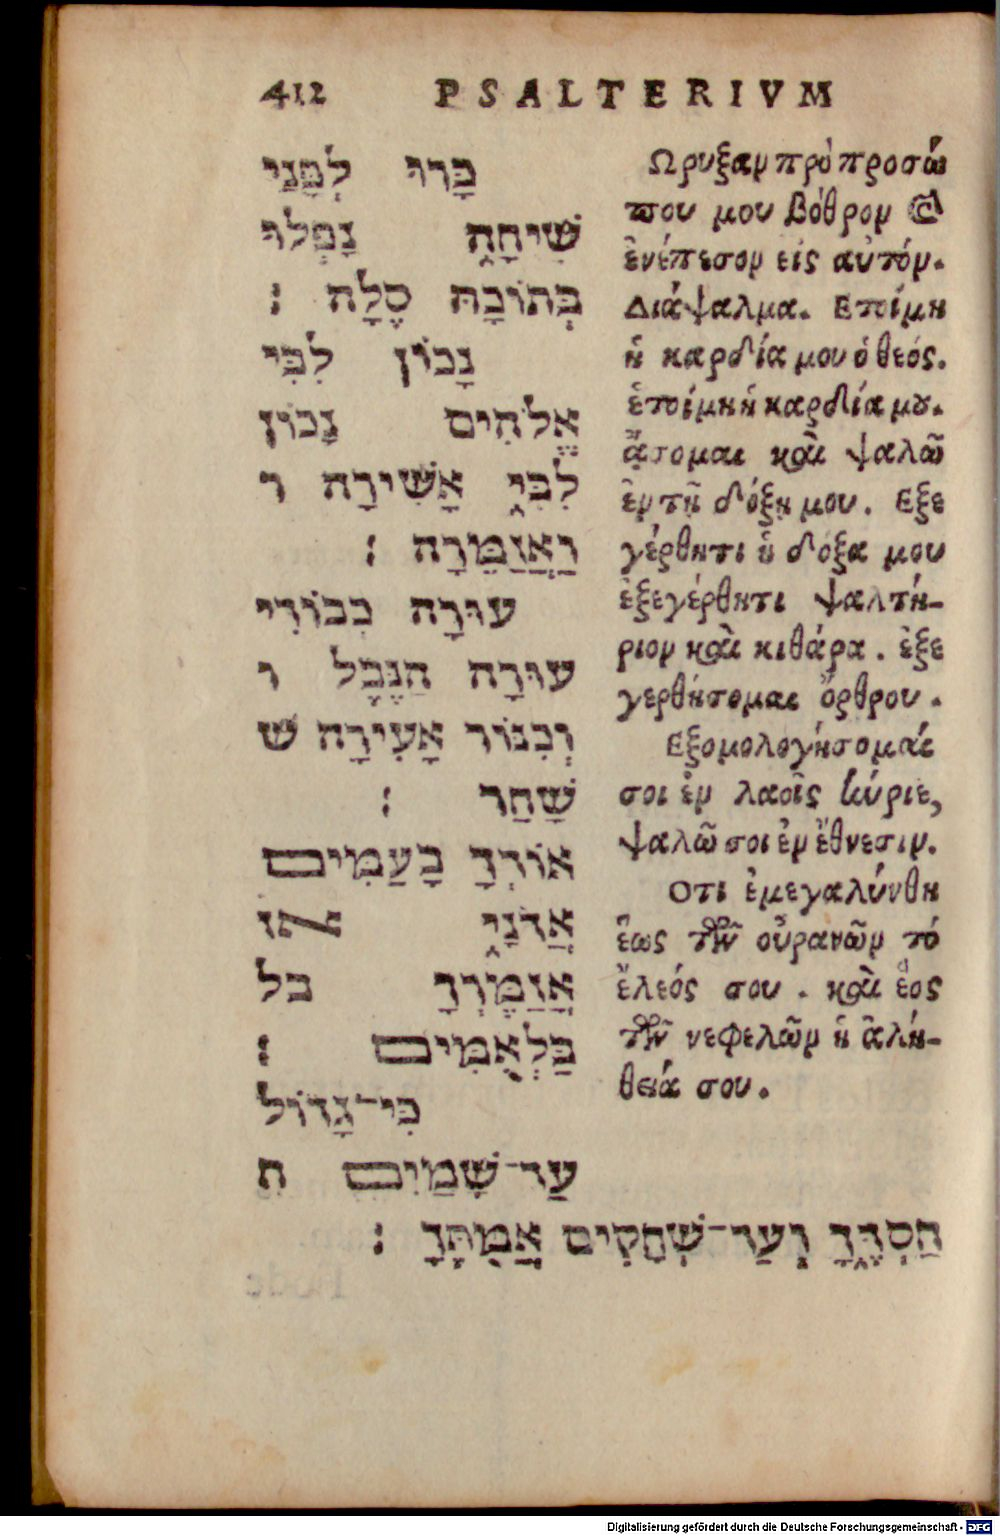 412 PSALTERIVM
כָּרוּ לְפָנַי
שִׁיחָה נָפְלוּ
בְתוֹכָהּ סֶלָה :
נָכוֹן לִבִּי
אֱלֹהִים נָכוֹן
לִבִּי אָשִׁירָה ו
וַאֲזַמֵּרָה :
עוּרָה כְבוֹדִי
עוּרָה הַנֶּבֶל ו
וְכִנּוֹר אָעִירָה ש
שָׁחַר :
אוֹדְךָ בָעַמִּים
אֲדֹנָי או
אֲזַמֶּרְךָ בל
בַּלְאֻמִּים :
כִּי־גָדוֹל
עַד־שָׁמַיִם ח
חַסְדֶּךָ וְעַד־שְׁחָקִים אֲמִתֶּךָ :
Ωρυξαν πρὸ προσώ
που μου βόθρον @
ἐνέπεσον εἰς αὐτόν.
Διάψαλμα. Ετοίμη
ἡ καρδία μου ὁ θεός.
ἑτοίμη ἡ καρδία μου.
ᾄσομαι καὶ ψαλῶ
ἐν τῇ δόξῃ μου. Εξε
γέρθητι ἡ δόξα μου
ἐξεγέρθητι ψαλτή-
ριον καὶ κιθάρα. ἐξε
γερθήσομαι ὄρθρου.
Εξομολογήσομαί
σοι ἐν λαοῖς κύριε,
ψαλῶ σοι ἐν ἔθνεσιν.
Οτι ἐμεγαλύνθη
ἕως τῶν οὐρανῶν τό
ἔλεός σου. καὶ ἕος
τῶν νεφελῶν ἡ ἀλή-
θειά σου.
Digitalisierung gefördert durch die Deutsche Forschungsgemeinschaft - DFG